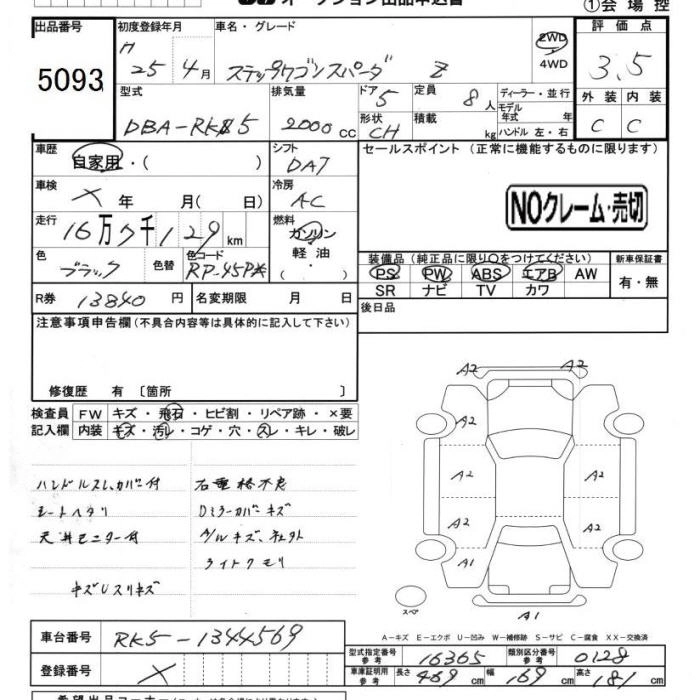 オークション出品申込書
①会場控
出品番号 5093
初度登録年月 H 25年4月
車名・グレード ステップワゴンスパーダ Z
2WD 4WD
評価点 3.5
型式 DBA-RK5
排気量 2000cc
ドア 5 形状 CH
定員 8人 積載 kg
ディーラー・並行
モデル年式 年式
ハンドル 左・右
外装 C 内装 C
車歴 自家用・( )
シフト DA7
セールスポイント(正常に機能するものに限ります)
車検 × 年 月( 日)
冷房 AC
NOクレーム・売切
走行 16万7千129km
燃料 ガソリン 軽油・( )
色 ブラック 色替 色コード
装備品(純正品に限り○をつけてください)
PS PW ABS エアB AW
SR ナビ TV カワ
新車保証書 有・無
R券 13840円 名変期限 月 日
後日品
注意事項申告欄(不具合内容等は具体的に記入して下さい)
修復歴 有〔箇所 〕
検査員記入欄
FW キズ・飛石・ヒビ割・リペア跡・×要
内装 キズ・汚レ・コゲ・穴・スレ・キレ・破レ
ハンドルスレ、カバー付
シートヘタリ
天井モニター付
キズUスリキズ
Dミラーカバーキズ
ライトクモリ
A2 A2
A2
A2 A2
A2 A2
A1 A1
スペア
A1
A-キズ E-エクボ U-凹み W-補修跡 S-サビ C-腐食 XX-交換済
車台番号 RK5-1344569
登録番号 ×
型式指定番号 参考 16365
類別区分番号 参考 0128
車庫証明用 参考 長さ 469cm 幅 169cm 高さ 181cm